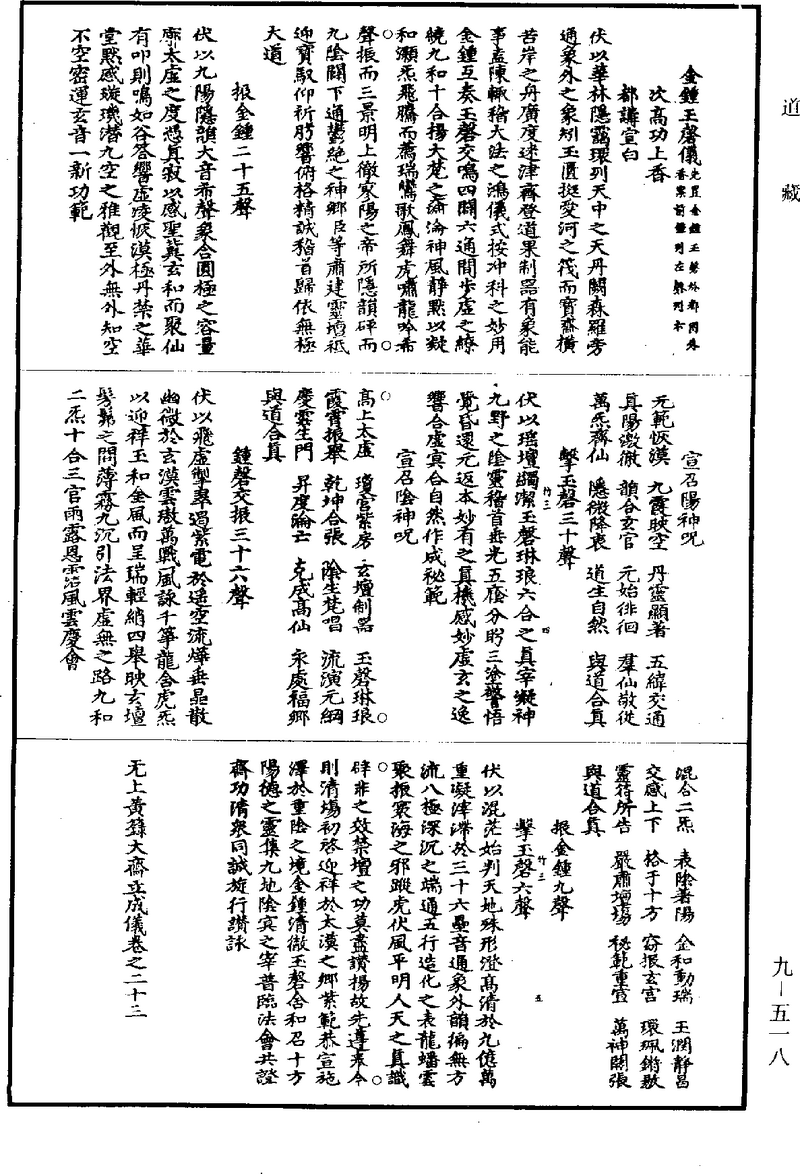 道藏
金鍾玉磬儀
次高功上香
都講宣白
伏以華林隱靄環列天中之天丹闕森羅旁
通象外之象矧玉匱挺愛河之筏而寶齋橫
苦岸之舟廣度迷津齊登道果制器有象能
事孟陳輒稽大法之鴻儀式按冲科之妙用
金鍾互奏玉磬交鳴四闢六通間步虛之繚
繞九和十合揚大梵之淪神風靜默以凝
和灝炁飛騰而薦瑞鸞歌鳳舞虎嘯龍吟希
聲振而三景明上徹寥陽之帝所隱韻碎而
九陰開下通鬱絕之神鄉臣等肅建靈壇祗
迎寶馭仰祈肸蠁俯格精誠稽首歸依無極
大道
振金鍾二十五聲
伏以九陽隱韻大音希聲象合圓極之容量
廓太虛之度憑真寂以感聖冀玄和而聚仙
有叩則鳴如谷答響虛
堂默感璇璣潜九空之雅觀至外無外知空
不空密運玄音一新功範
宣召陽神呪
元範恢漠　九霞映空　丹靈顯著　五緯交通
真陽激徹　韻合玄官　元始徘徊　羣仙敬從
萬炁齊仙　隱微降衷　道生自然　與道合真
擊玉磬三十聲
伏以瑶壇蠲潔玉磬琳琅六合之真宰凝神
九野之陰靈稽首垂光五蔭分𨈬三塗警悟
覺昏還元返本妙有之真機感妙虛玄之逸
響合虛寘合自然作咸祕範
宣召陰神呪
高上太虛　瓊宮紫房　玄壇制器　玉磬琳琅
霞霄振舉　乾坤合張　陰生梵唱　流演元綱
慶雲生門　昇度淪亡　克成高仙　永處福鄉
與道合真
鍾磬交振三十六聲
伏以飛虛掣翠遏紫電於遥空流燁垂晶散
幽微於玄漠雲璈萬戰風詠千箏龍含虎炁
以迎祥玉和金風而呈瑞輕綃四舉映玄壇
髣髴之間薄霧九沉引法界虛無之路九和
二炁十合三官雨露恩霑風雲慶會
混合二炁　表陰著陽　金和動瑞　玉潤靜昌
交感上下　格于十方　竊振玄宮　環珮鏘歇
靈符所告　嚴肅壇場　祕範重宣　萬神開張
與道合真
振金鍾九聲
擊玉磬六聲
伏以混茫始判天地殊形澄髙清於九億萬
重凝滓滯於三十六壘音通象外韻徧無方
流八極深沉之端通五行造化之表龍蟠雲
聚振寰海之邪蹤虎伏風平明人天之真識
辟非之效禁壇之功莫盡讚揚故先遵奉今
則清場初啓迎祥於太漠之鄉紫範恭宣施
澤於重陰之境金鍾清徹玉磬含和召十方
陽德之靈集九地陰賔之宰普臨法會共證
齋功清衆同誠旋行讚詠
无上黄籙大齋立成儀卷之二十三
九—五一八